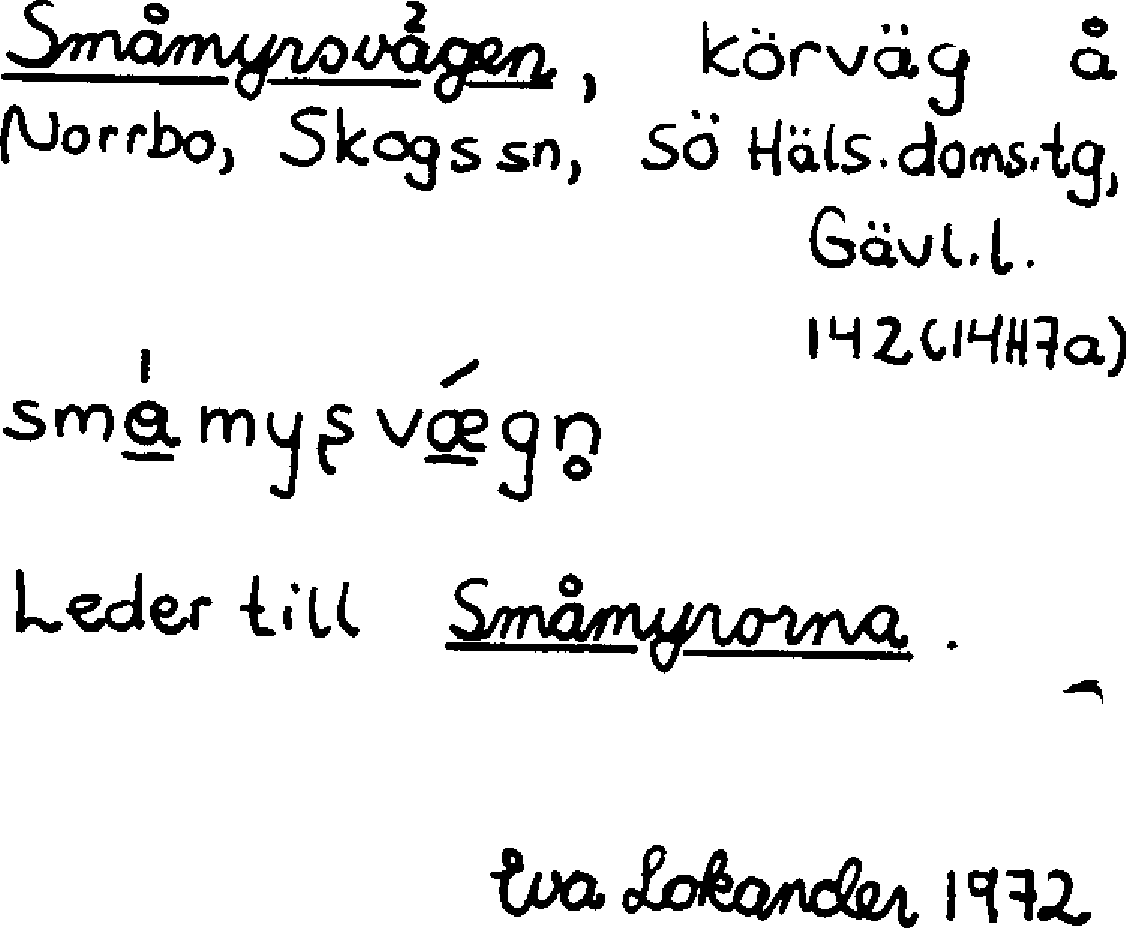 Småmyrsvägen, körväg å
Norrbo, Skogs sn, SÖ Häls. doms.tg,
Gävl.l.
142 (14H7a)
småmyʂvægn̥
Leder till Småmyrorna.
Eva Lokander 1972